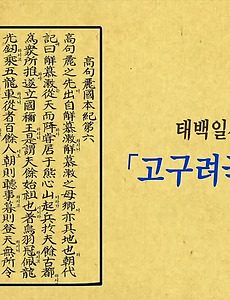 高句麗國本紀第六
高句麗之先出自解慕漱之母鄉亦其地也朝代
記曰解慕漱從天而降甞居于熊心山起兵於夫余古都
爲衆所推遂立國稱王是謂夫余始祖也着烏羽冠佩龍
光釼乘五龍車從者百餘人朝則聽事暮則登天無所令
태백일
「고구려